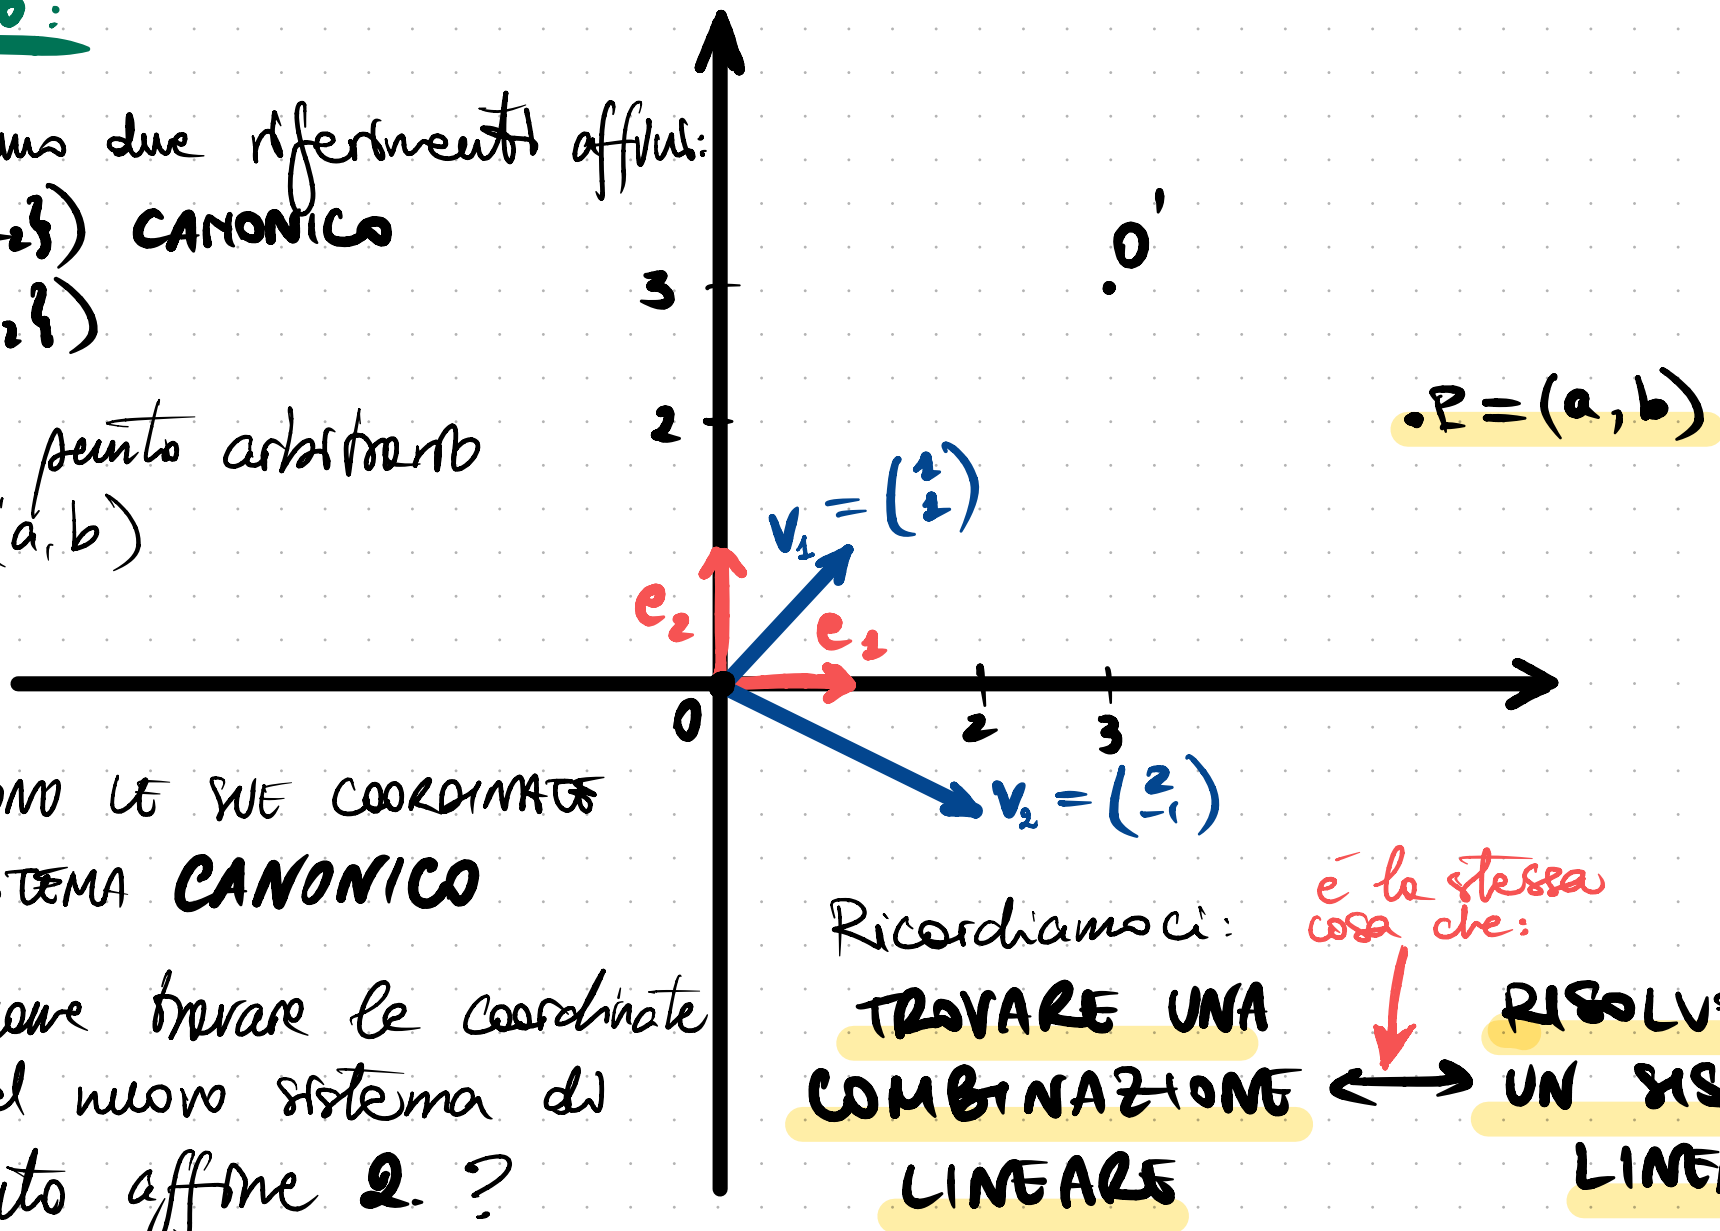 o:
due riferimenti affini:
2}) CANONICO
2})
punto arbitrario
(a, b)
ONO LE SUE COORDINATE
STEMA CANONICO
come trovare le coordinate
el nuovo sistema di
nto affine 2. ?
3
2
O'
.P = (a, b)
v₁ = (1 1)
e₂
e₁
O
2
3
v₂ = (2 -1)
Ricordiamoci:
è la stessa
cosa che:
TROVARE UNA
COMBINAZIONE
LINEARE
RISOLV
UN SIS
LINE